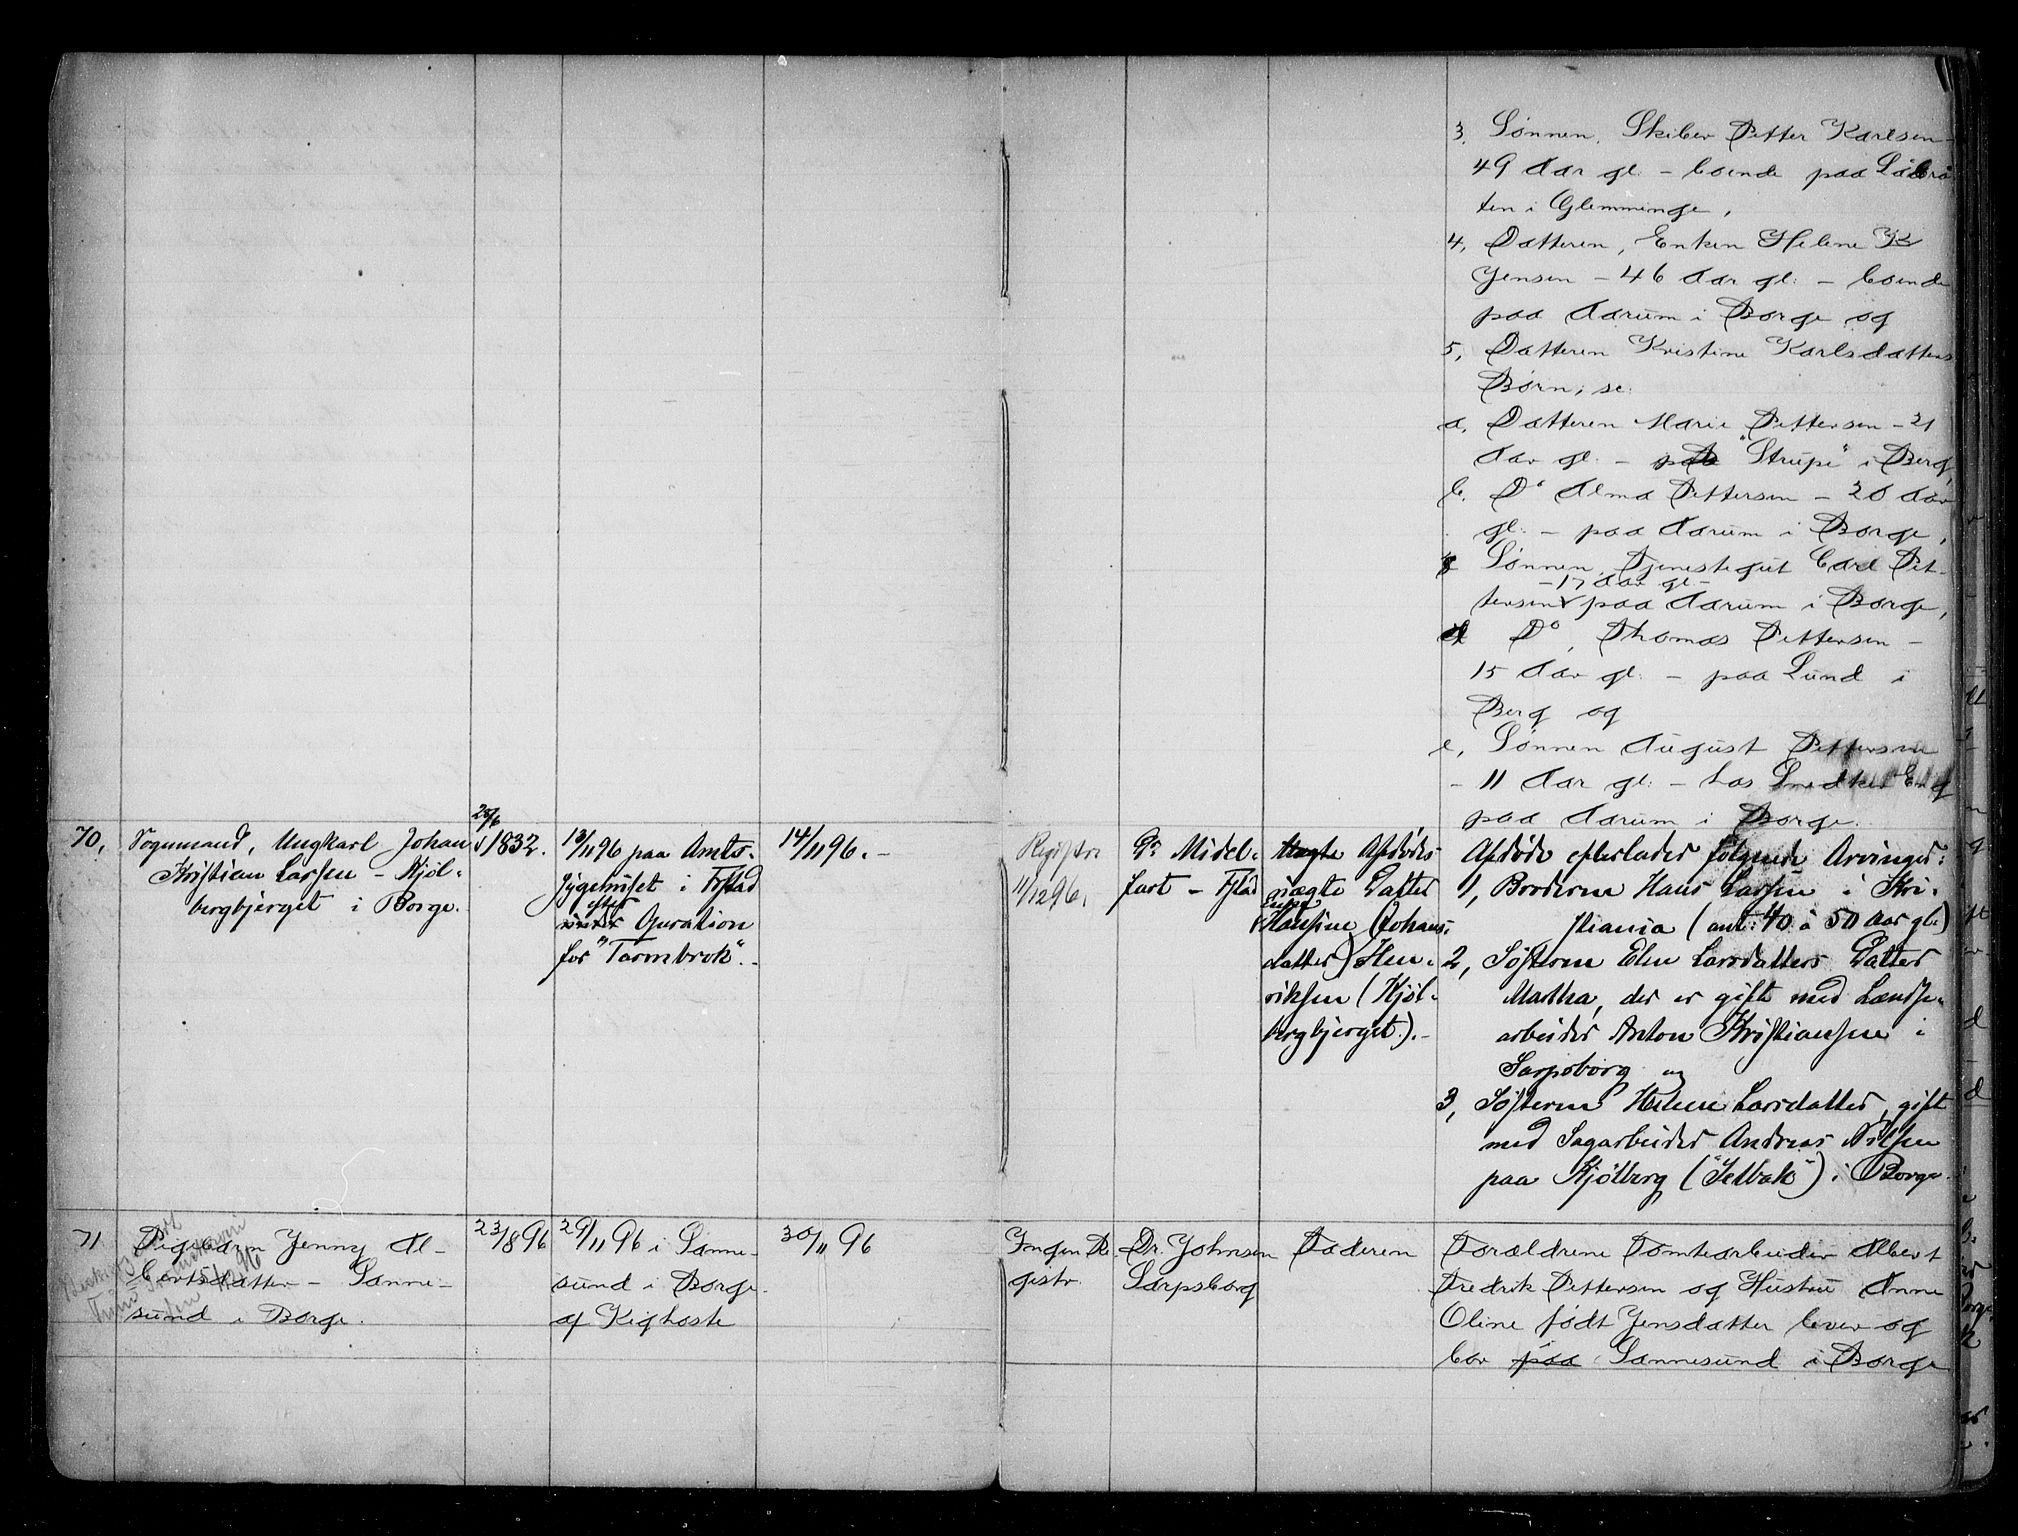 3. Sønnen, Skiber Petter Karlsen -
49 Aar gl. - boende paa Labrå
ten i Glemminge,
4, Datteren, Enken Helene K
Jensen - 46 Aar gl: - boende
paa Aarum i Borge og
5, Datteren Kristine Karlsdatters
Børn; se:
a. Datteren Marie Pettersen - 21
Aar gl: - paa "Strupe" i Berg,
b. Do Alma Pettersen - 20 Aar
gl: - paa Aarum i Borge,
Sønnen, Tjenestegut Carl Pet-
- 17 Aar gl -
tersen paa Aarum i Borge,
d Do, Thomas Pettersen -
15 Aar gl: - paa Lund i
Berg og
e, Sønnen August Pettersen
- 11 Aar gl: - hos Snedker Eng
paa Aarum i Borge.
70,
Logsmand, Ungkarl Johan
Kristian Larsen - Kjøl-
bergbjerget i Borge.
1832.
13/11 96 paa Amts-
sygehuset i Frstad
efter
under Operation
for "Tarmbrok". -
14/11 96. -
Registr.
11/12 96.
Dr. Midel-
fart - Fstad
Uægte Afdødes
uægte Datter
Enke
Hansine (Johans-
datter) Hen-
riksen (Kjøl-
bergbjerget). -
Afdøde efterlader følgende Arvinger:
1, Broderen Hans Larsen i Kri-
stiania (ant: 40 à 50 Aar gl:)
2, Søsteren Elen Larsdatters Datter
Martha, der er gift med Landse-
arbeider Anton Kristiansen i
Sarpsborg og
3, Søsteren Helene Larsdatter, gift
med Sagarbeider Andreas Nilsen
paa Kjølberg ("Selbak") i Borge.
71.
Pigebarn Jenny Al-
bertsdatter - Sanne-
sund i Borge.
23/8 96
29/11 96 i Sanne-
sund i Borge
af Kighoste
30/11 96
Ingen Re
gistr.
Dr. Johnsen
Sarpsborg
Faderen
Forældrene Tomtearbeider Albert
Fredrik Pettersen og Hustru Anne
Oline født Jensdatter lever og
bor paa Sannesund i Borge